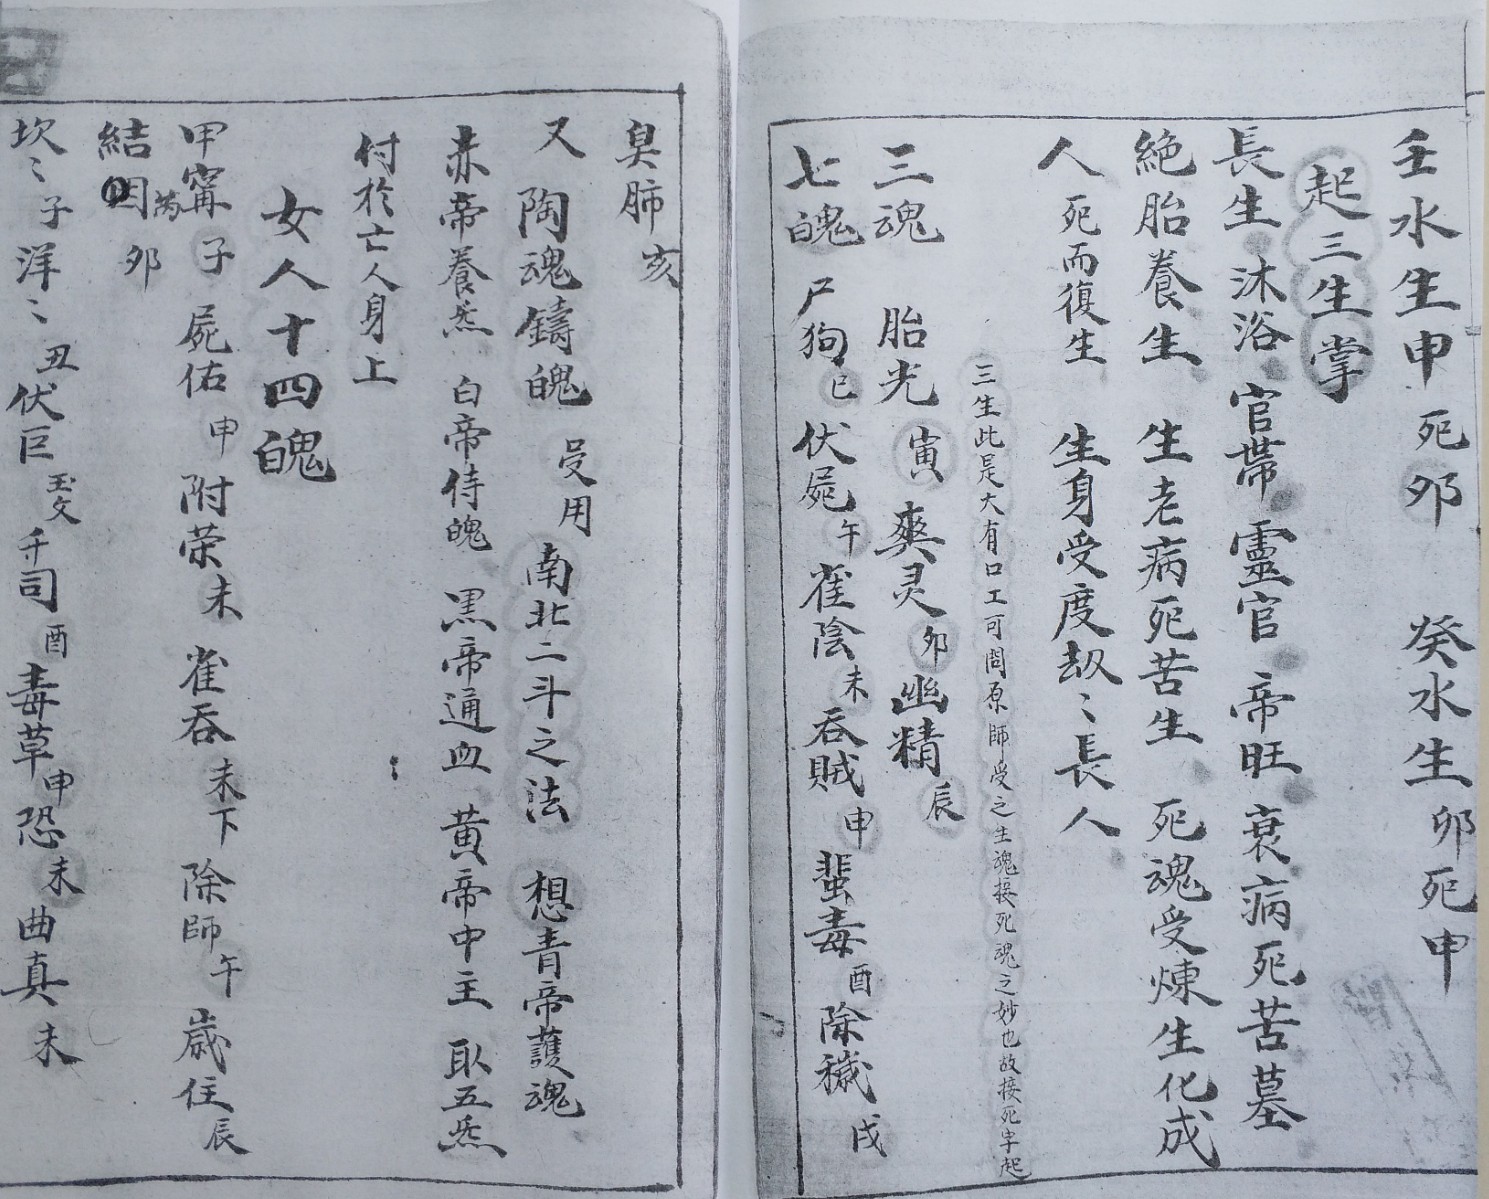 壬水生申 死卯 癸水生卯死申
起三生掌
長生 沐浴 官帶 靈官 帝旺 衰病死苦墓
絶胎養生 生老病死苦生 死魂受煉生化成
人 死而復生 生身受度劫〻長人
三生此是大有口工可問原師受之生魂接死魂之妙也故接死字起
三魂 胎光 寅 爽灵 卯 幽精 辰
七魄 尸狗 巳 伏屍 午 雀陰 未 吞賊 申 蜚毒 酉 除穢 戌
臭肺 亥
又 陶魂鑄魄 受用 南北二斗之法 想青帝護魂
赤帝養炁 白帝侍魄 黑帝通血 黃帝中主 取五炁
付於亡人身上
女人十四魄
甲窜 子 屍佑 申 附荣 未 雀吞 未 下除師 午 歲住 辰
結因 卯
坎〻 子 洋〻 丑 伏巨 千司 酉 毒草 申 恐 未 曲真 未